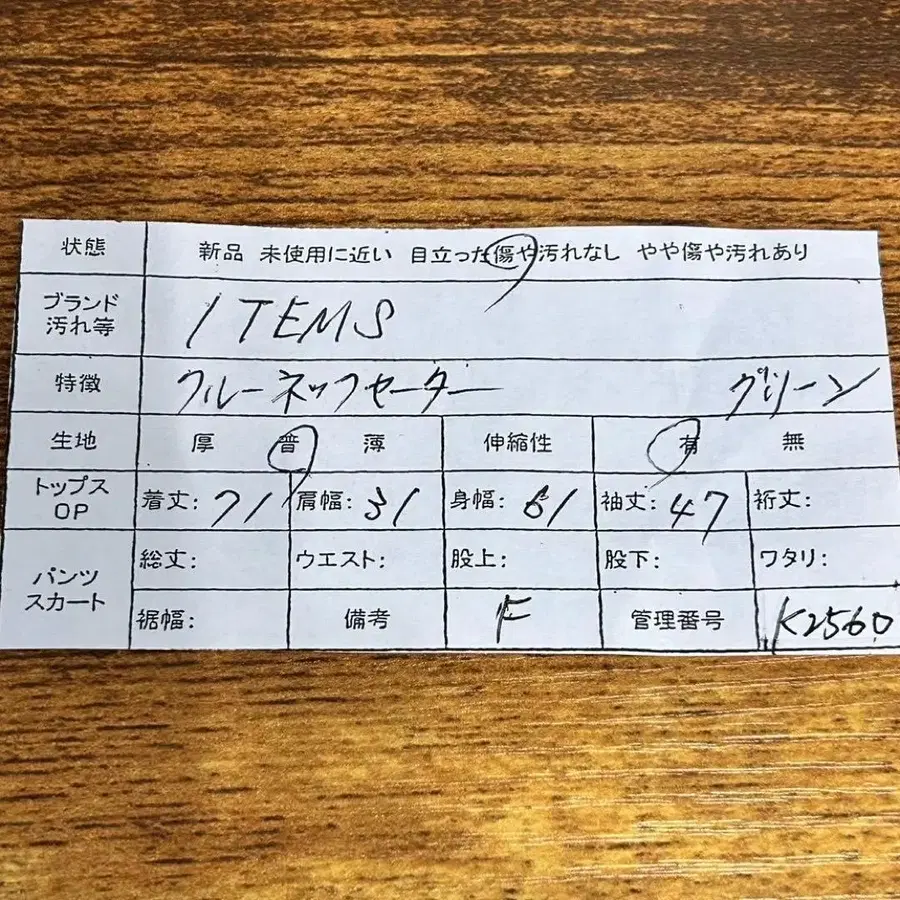 状態 新品 未使用に近い 目立った傷や汚れなし やや傷や汚れあり
ブランド
汚れ等 ITEMS
特徴 クルーネックセーター グリーン
生地 厚 普 薄 伸縮性 有 無
トップス
OP 着丈: 71 肩幅: 31 身幅: 61 袖丈: 47 裄丈:
パンツ
スカート 総丈: ウエスト: 股上: 股下: ワタリ:
裾幅: 備考 F 管理番号 K2560